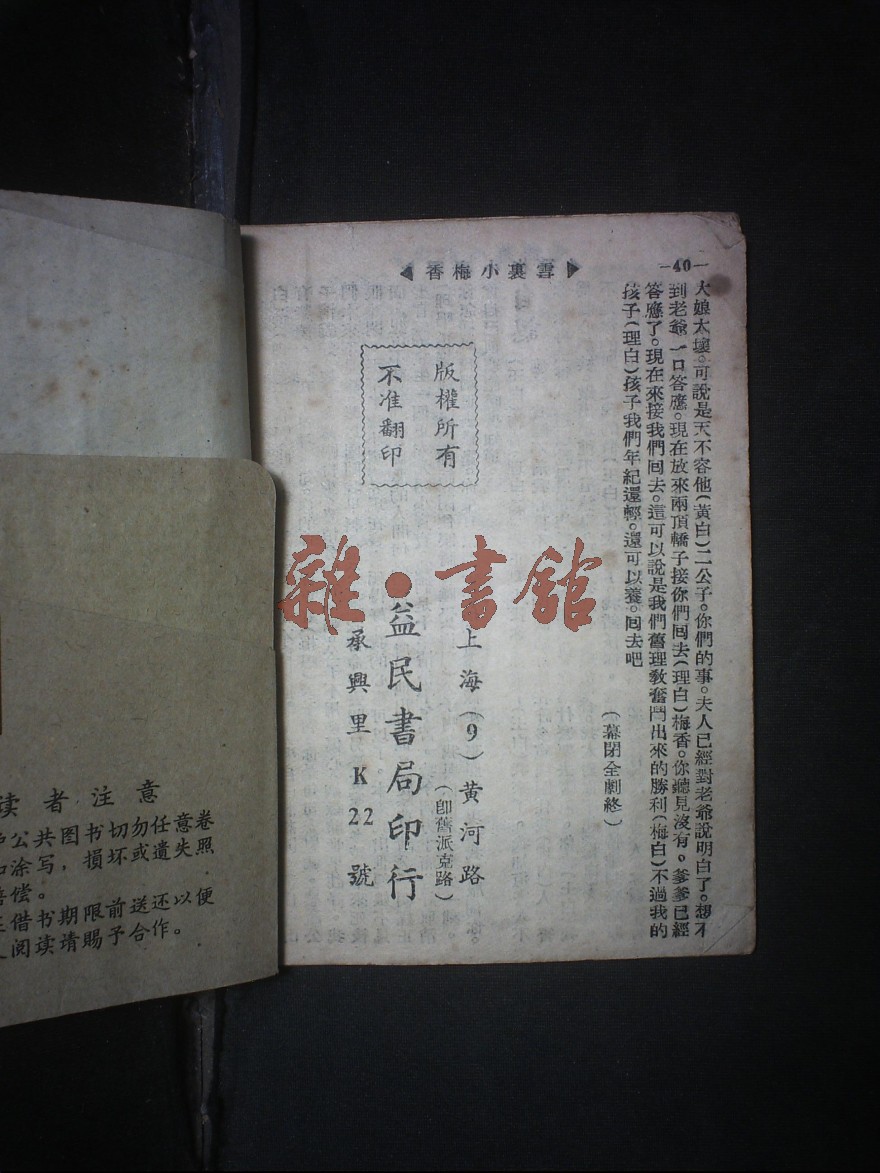 —40—
雪裏小梅香
大娘太壞。可說是天不容他(黃白)二公子。你們的事。夫人已經對老爺說明白了。想不
到老爺一口答應。現在放來兩頂轎子接你們囘去(理白)梅香。你聽見沒有。爹爹已經
答應了。現在來接我們囘去。這可以說是我們舊理敎奮鬥出來的勝利(梅白)不過我的
孩子(理白)孩子我們年紀還輕。還可以養。囘去吧
(幕閉全劇終)
版權所有
不准翻印
上海(9)黄河路
(卽舊派克路)
益民書局印行
承興里K22號
雜·書館
读者注意
公共图书切勿任意卷
涂写，损坏或遗失照
偿。
借书期限前送还以便
阅读请赐予合作。